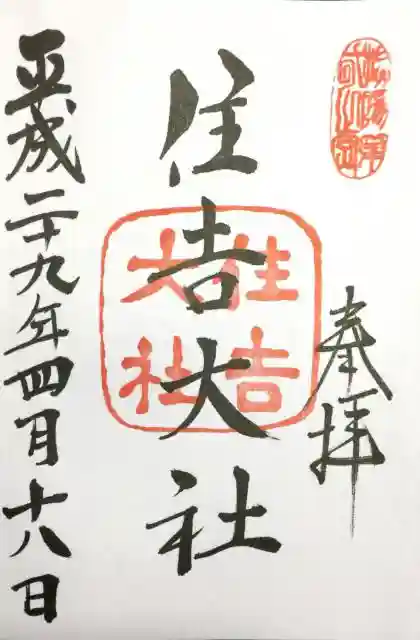 奉拝
住吉大社
住吉
大社
平成二十九年四月十八日